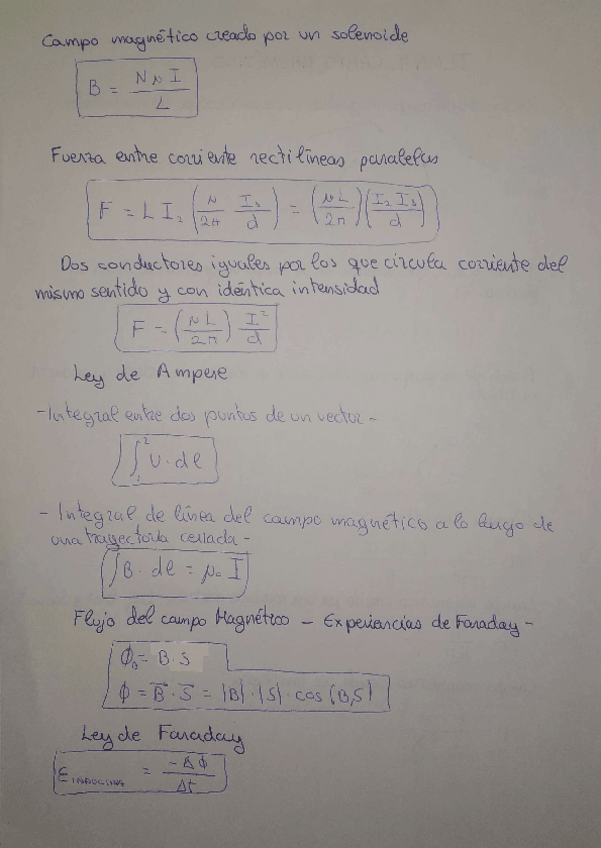 Campo magnético creado por un solenoide
B = NμI / L
Fuerza entre corriente rectilíneas paralelas
F = L I₂ (μ/2π I₁/d) = (μL/2π)(I₂ I₁/d)
Dos conductores iguales por los que circula corriente del
mismo sentido y con idéntica intensidad
F = (μL/2π) I²/d
Ley de Ampere
-Integral entre dos puntos de un vector-
∫₁² v · dl
- Integral de línea del campo magnético a lo largo de
una trayectoria cerrada -
∫B · dl = μ₀ I
Flujo del campo Magnético - Experiencias de Faraday -
ϕ_B = B · S
ϕ = B · S = |B| · |S| · cos (B,S)
Ley de Faraday
ε = -Δϕ / Δt